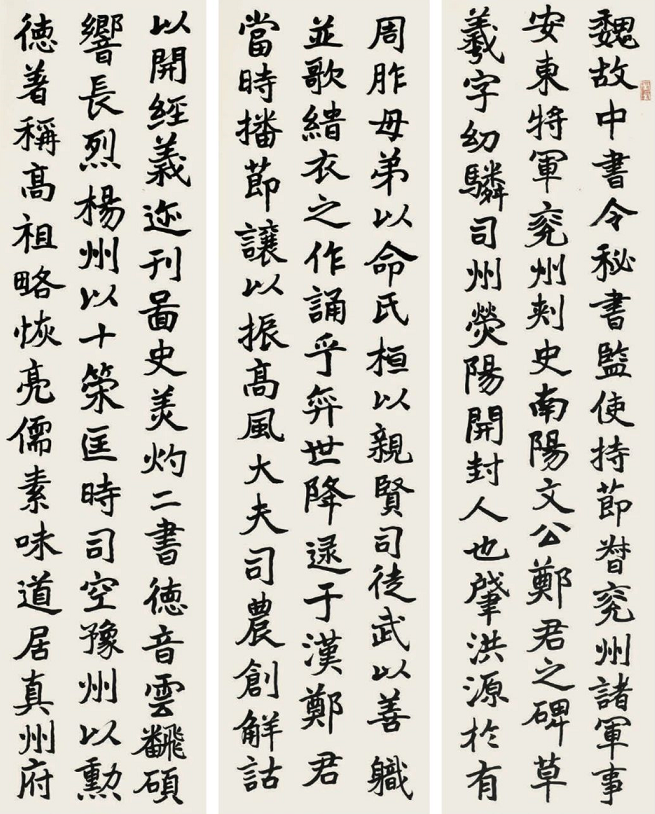 魏故中書令秘書監使持節督兗州諸軍事
安東將軍兗州刾史南陽文公鄭君之碑草
羲字幼驎司州熒陽開封人也肈洪源於有
周胙母弟以命氏桓以親賢司徒武以善軄
並歌緇衣之作誦乎弈世降逯于漢鄭君
當時播節讓以振高風大夫司農創解詁
以開經義迹刊啚史美灼二書徳音雲飜碩
響長烈楊州以十策匡時司空豫州以勲
徳著稱高祖略恢亮儒素味道居真州府